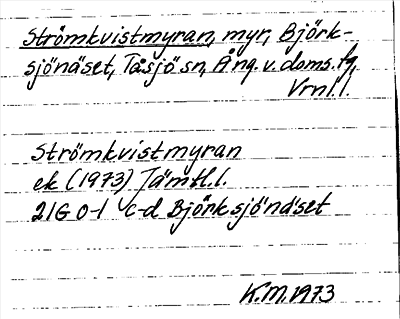 Strömkvistmyran, myr, Björk-
sjönäset, Tåsjö sn, Ång. v. doms. fg,
Vrnl. l.
Strömkvistmyran
ek (1973) Jämtl. l.
21G 0-1 c-d Björksjönäset
K.M. 1973